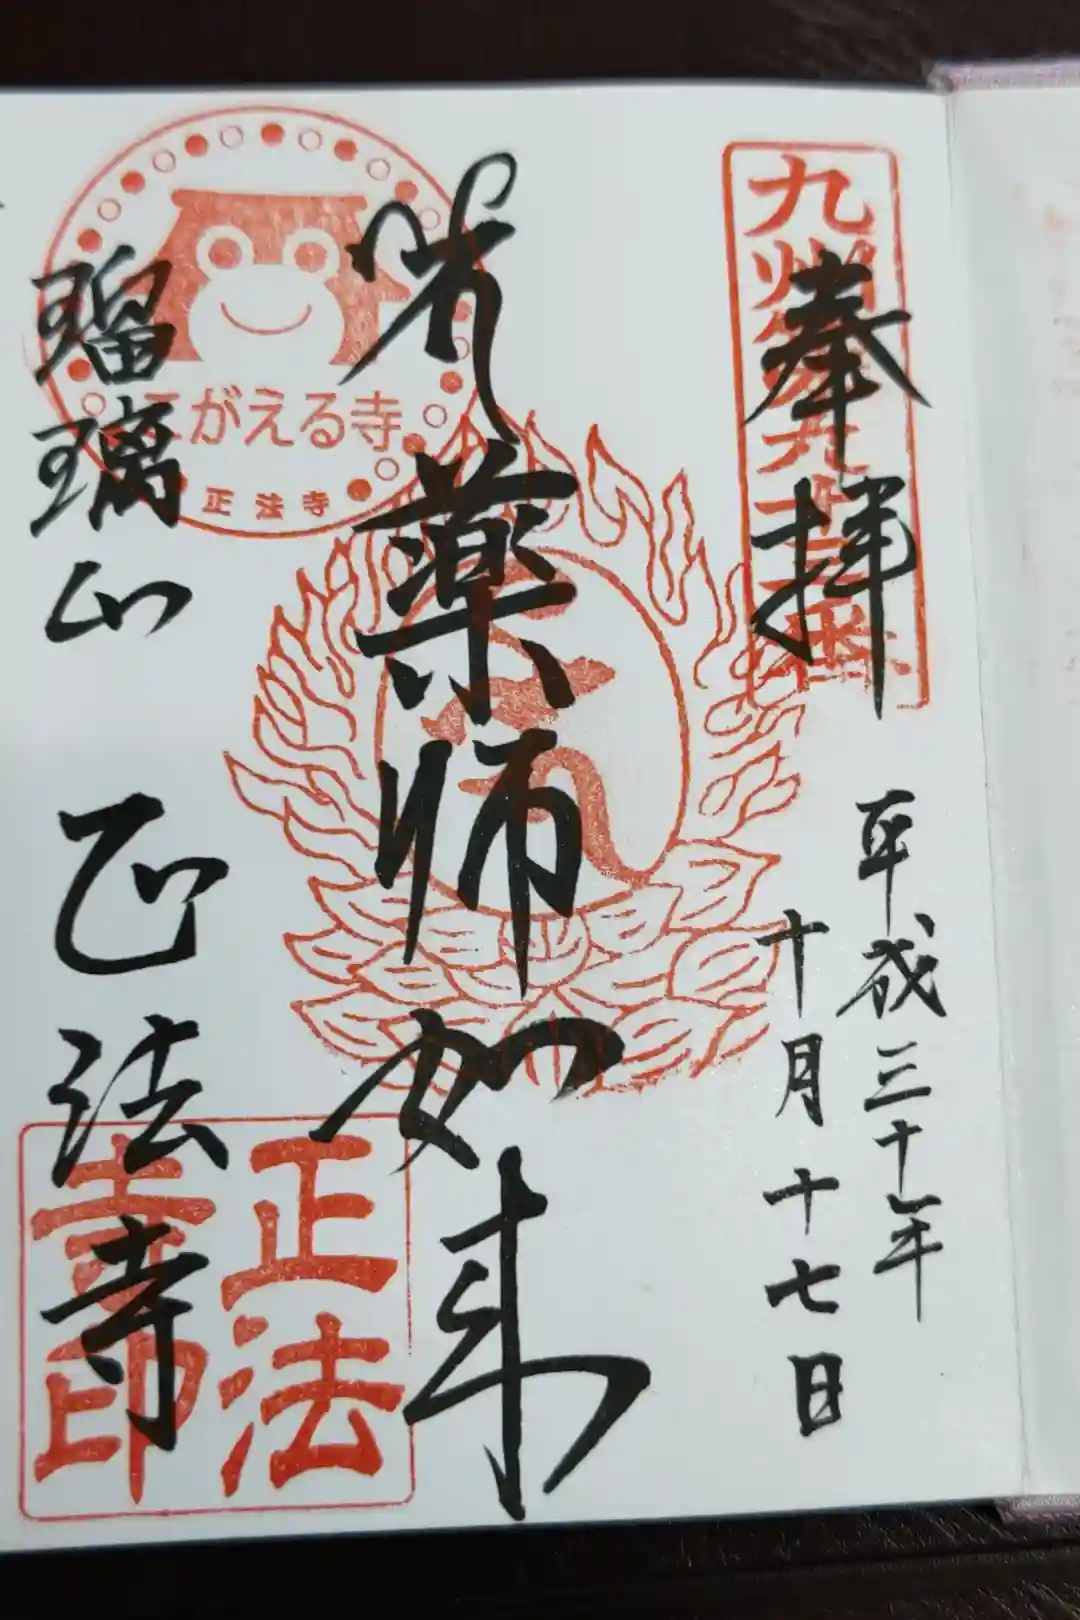 奉拝
平成三十年
十月十七日
薬師如来
瑠璃山
正法寺
がえる寺
正法寺
正法
寺印